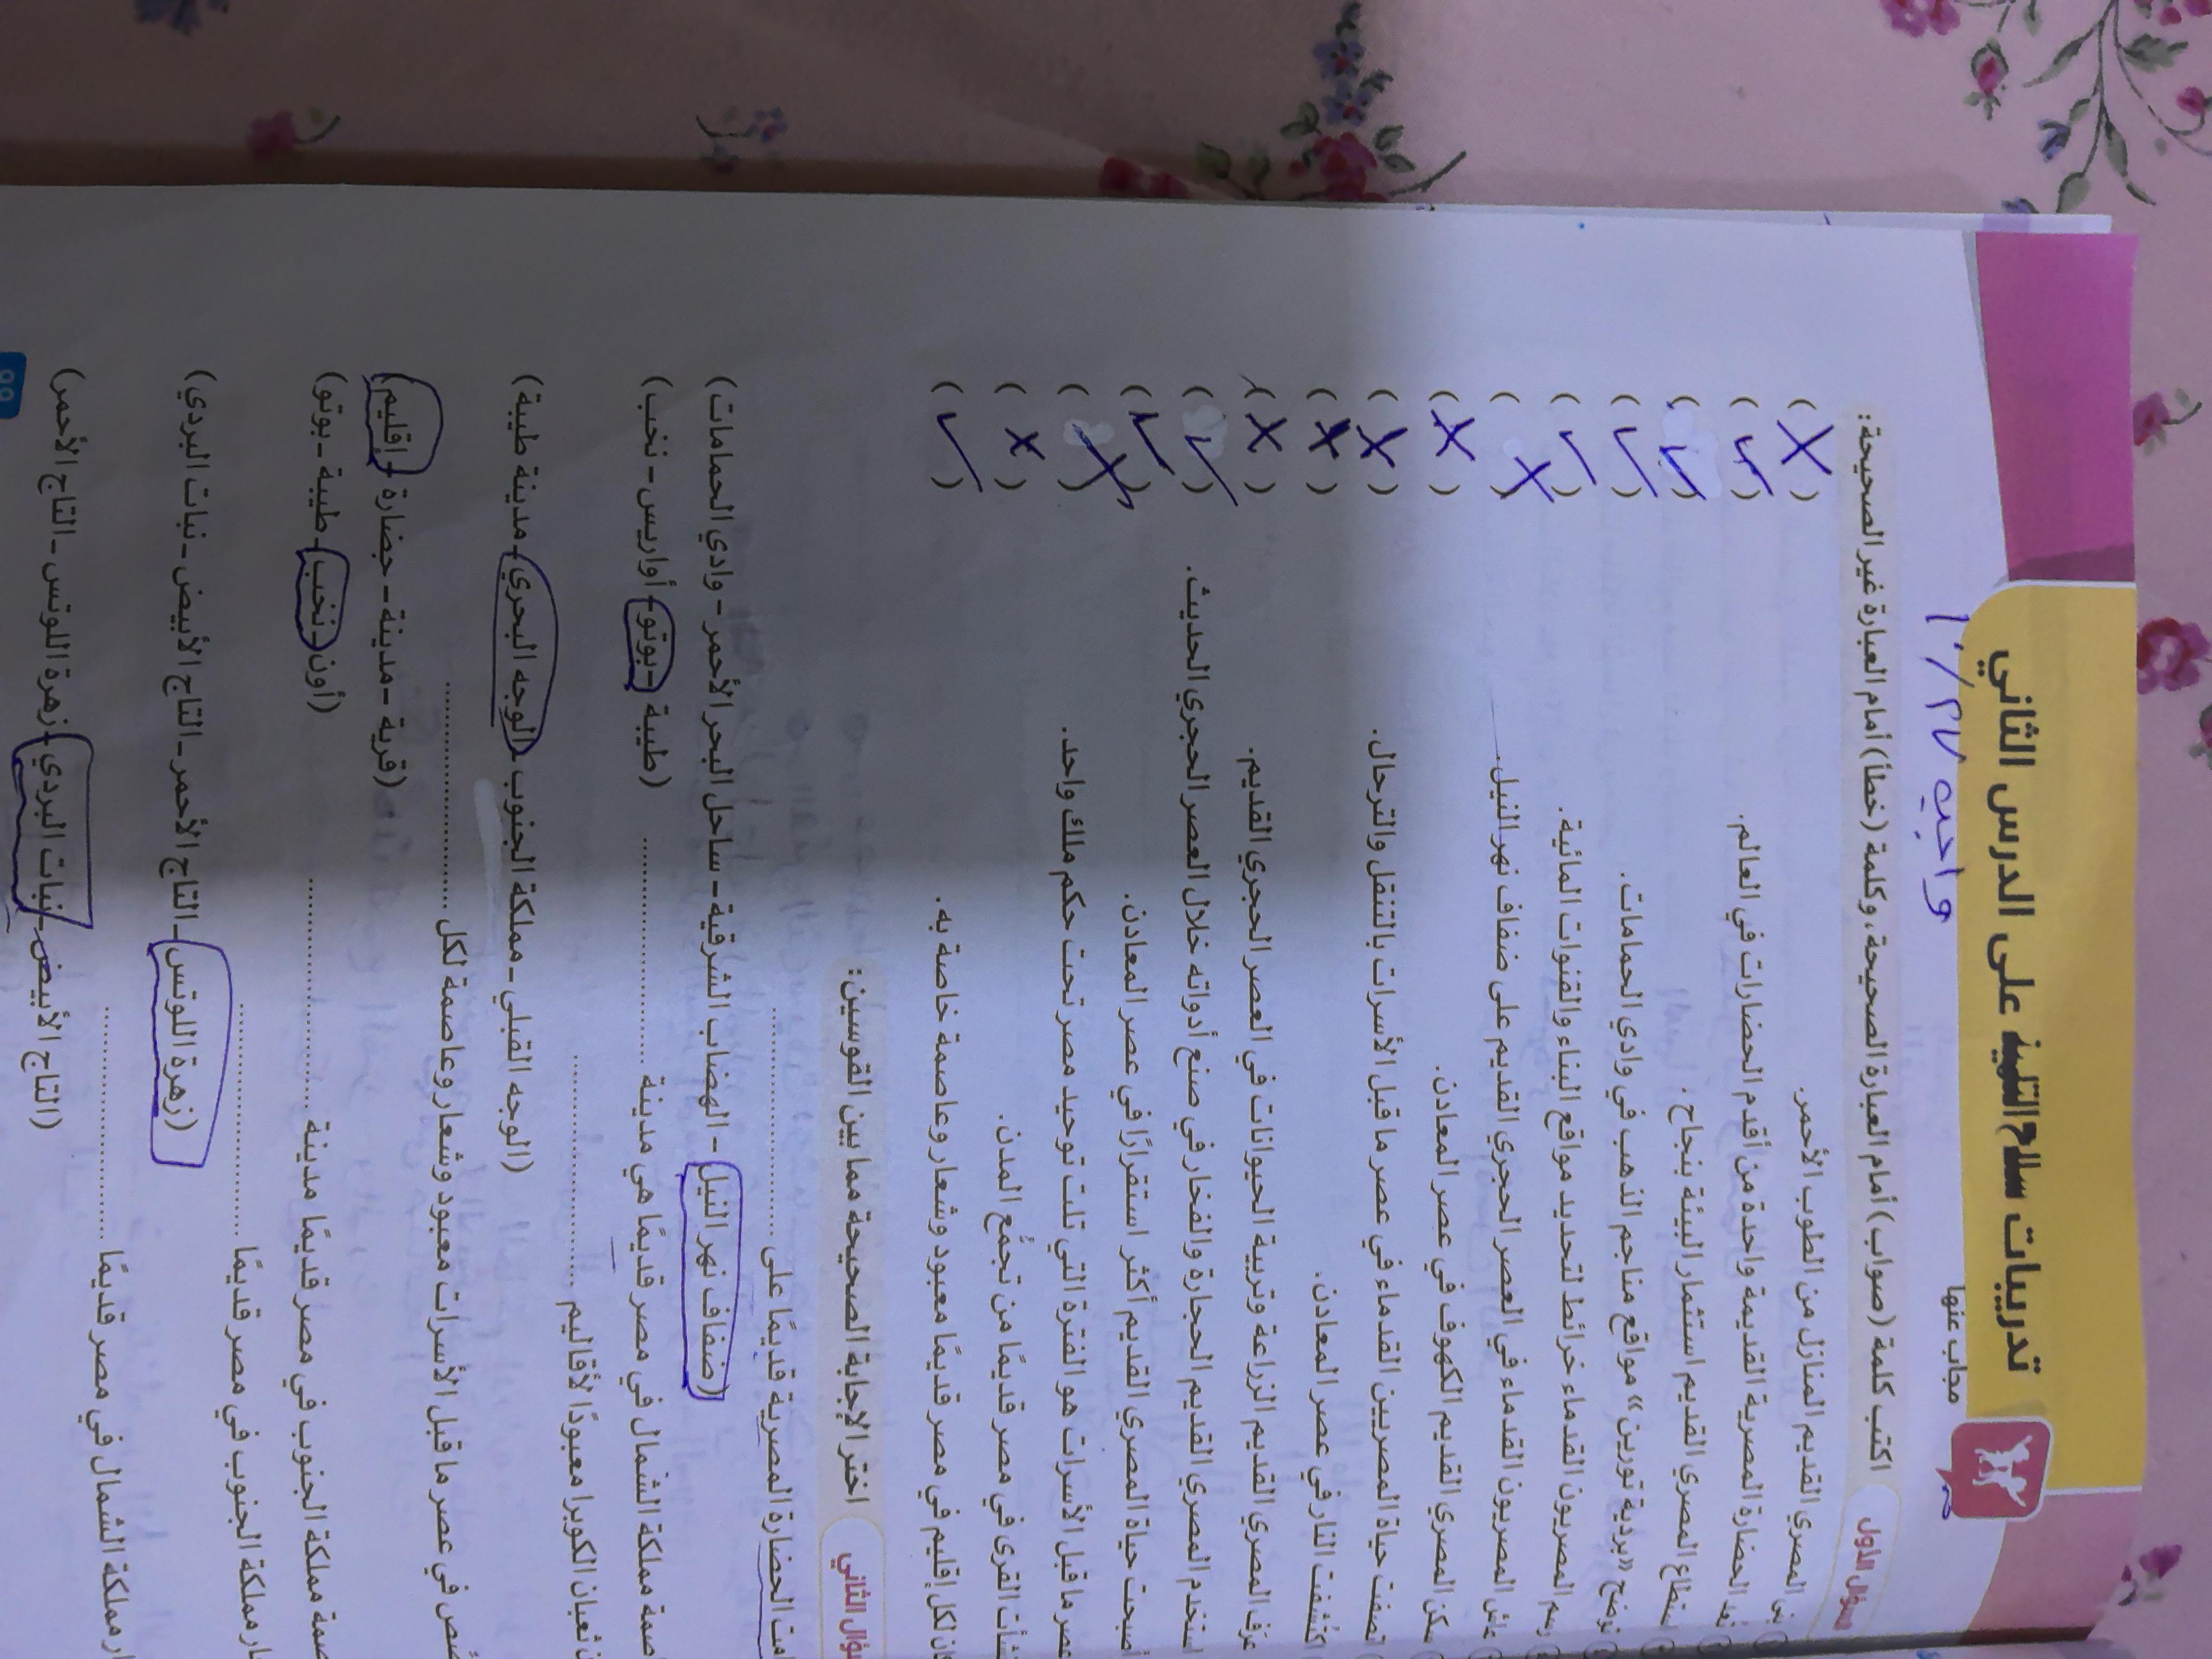 تدريبات سلاح التلميذ على الدرس الثاني
مجاب عنها
واجب ٢٧/١٠
السؤال الأول
اكتب كلمة (صواب) أمام العبارة الصحيحة، وكلمة (خطأ) أمام العبارة غير الصحيحة:
بنى المصري القديم المنازل من الطوب الأحمر. (X)
تُعد الحضارة المصرية القديمة واحدة من أقدم الحضارات في العالم. (✓)
استطاع المصري القديم استثمار البيئة بنجاح. (✓)
توضح «بردية تورين» مواقع مناجم الذهب في وادي الحمامات. (✓)
رسم المصريون القدماء خرائط لتحديد مواقع البناء والقنوات المائية. (✓)
عاش المصريون القدماء في العصر الحجري القديم على ضفاف نهر النيل. (X)
سكن المصري القديم الكهوف في عصر المعادن. (X)
اتصفت حياة المصريين القدماء في عصر ما قبل الأسرات بالتنقل والترحال. (X)
اكتُشفت النار في عصر المعادن. (X)
عرف المصري القديم الزراعة وتربية الحيوانات في العصر الحجري القديم. (X)
استخدم المصري القديم الحجارة والفخار في صنع أدواته خلال العصر الحجري الحديث. (✓)
أصبحت حياة المصري القديم أكثر استقرارًا في عصر المعادن. (✓)
عصر ما قبل الأسرات هو الفترة التي تلت توحيد مصر تحت حكم ملك واحد. (X)
نشأت القرى في مصر قديمًا من تجمُّع المدن. (X)
كان لكل إقليم في مصر قديمًا معبود وشعار وعاصمة خاصة به. (✓)
السؤال الثاني
اختر الإجابة الصحيحة مما بين القوسين:
الحضارة المصرية قديمًا على ..............
(ضفاف نهر النيل - الهضاب الشرقية - ساحل البحر الأحمر - وادي الحمامات)
مملكة الشمال في مصر قديمًا هي مدينة ..............
(طيبة - بوتو - أواريس - نخب)
ثعبان الكوبرا معبودًا لأقاليم ..............
(الوجه القبلي - مملكة الجنوب - الوجه البحري - مدينة طيبة)
في عصر ما قبل الأسرات معبود وشعار وعاصمة لكل ..............
(قرية - مدينة - حضارة - إقليم)
مملكة الجنوب في مصر قديمًا مدينة ..............
(أون - نخب - طيبة - بوتو)
مملكة الجنوب في مصر قديمًا ..............
(زهرة اللوتس - التاج الأحمر - التاج الأبيض - نبات البردي)
مملكة الشمال في مصر قديمًا ..............
(التاج الأبيض - نبات البردي - زهرة اللوتس - التاج الأحمر)